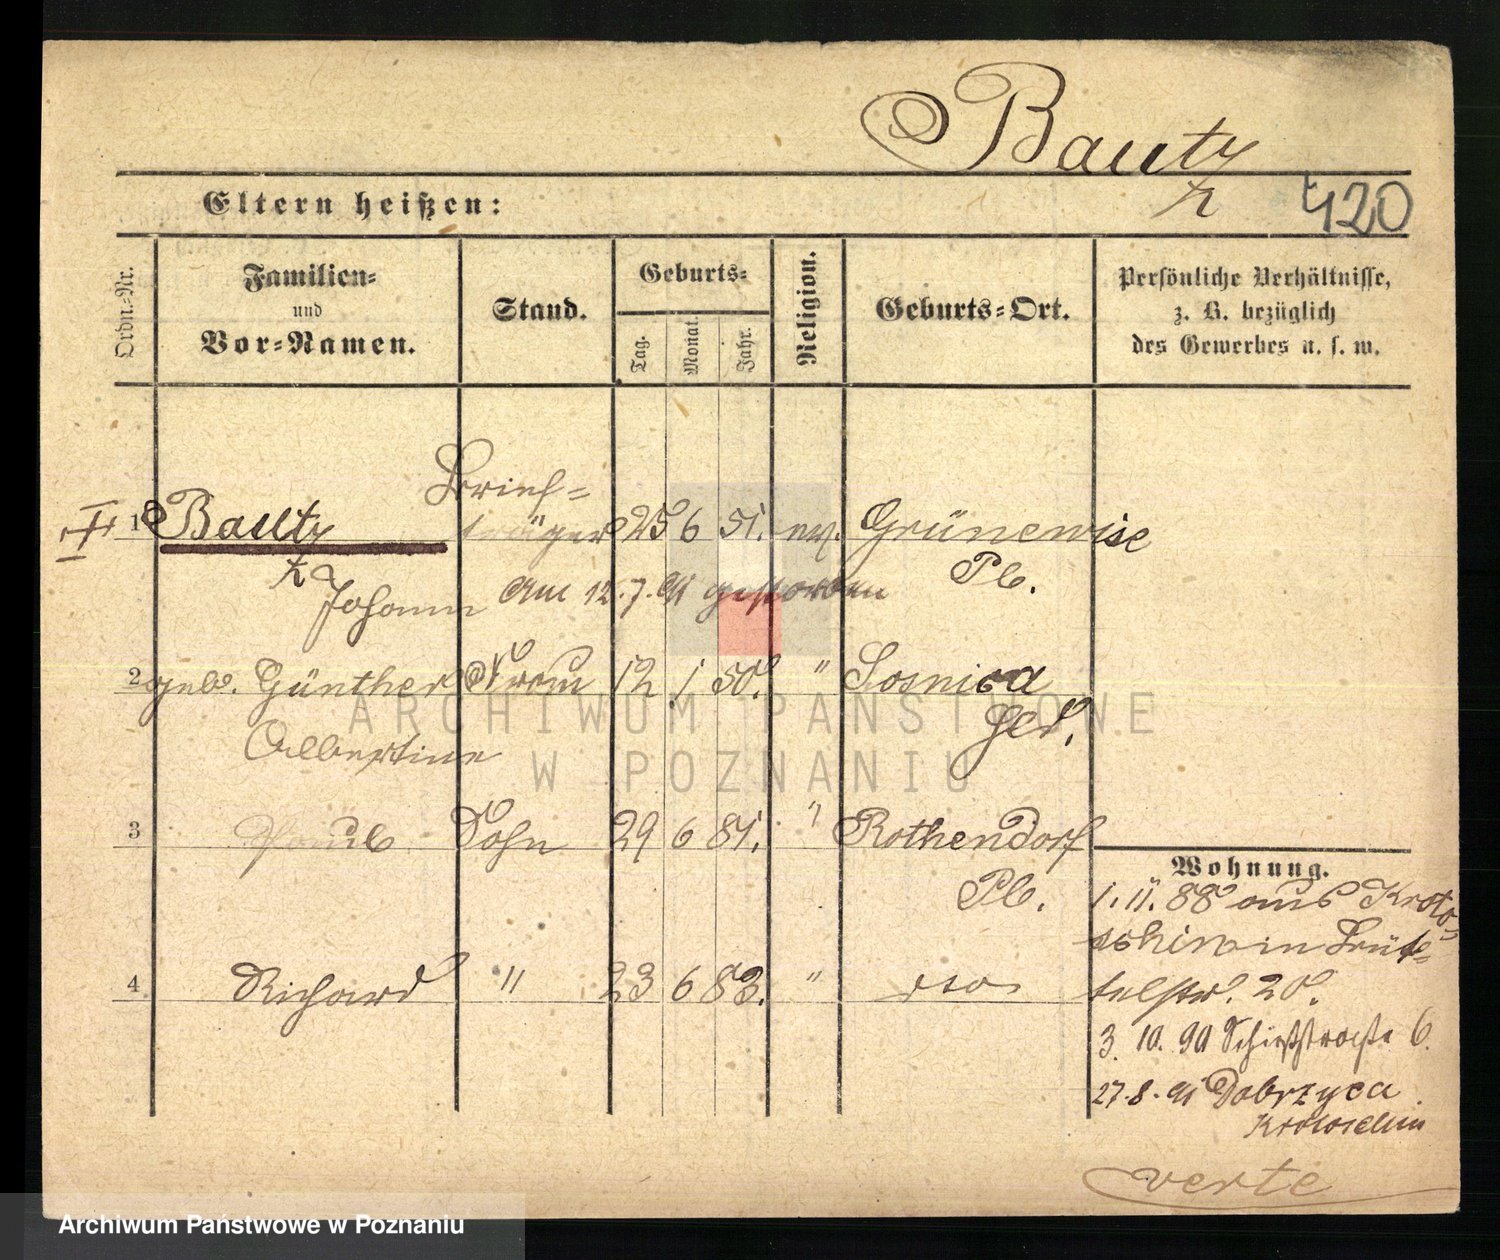 Bautz
tz
420
Eltern heißen:
Ordn.-Nr.
Familien-
und
Vor-Namen.
Stand.
Geburts-
Tag.
Monat.
Jahr.
Religion.
Geburts-Ort.
Persönliche Verhältnisse,
z. B. bezüglich
des Gewerbes u. s. w.
Brief=
1 Bautz träger 25 6 51. ev. Grünewise
tz Johann Am 12.7.91 gestorben Pb.
2 geb. Günther Frau 12 1 50. " Sosnica
Albertine
3 Paul Sohn 29 6 81. " Rothendorf
Pb.
4 Richard " 23 6 83. " dto
Wohnung.
1. 11. 88 aus Kroto-
schin in Büt-
telstr. 20.
3. 10. 90 Schießstraße 6.
27. 8. 91 Dobrzyca
Krotoschin
verte
ARCHIWUM PAŃSTWOWE
W POZNANIU
Archiwum Państwowe w Poznaniu